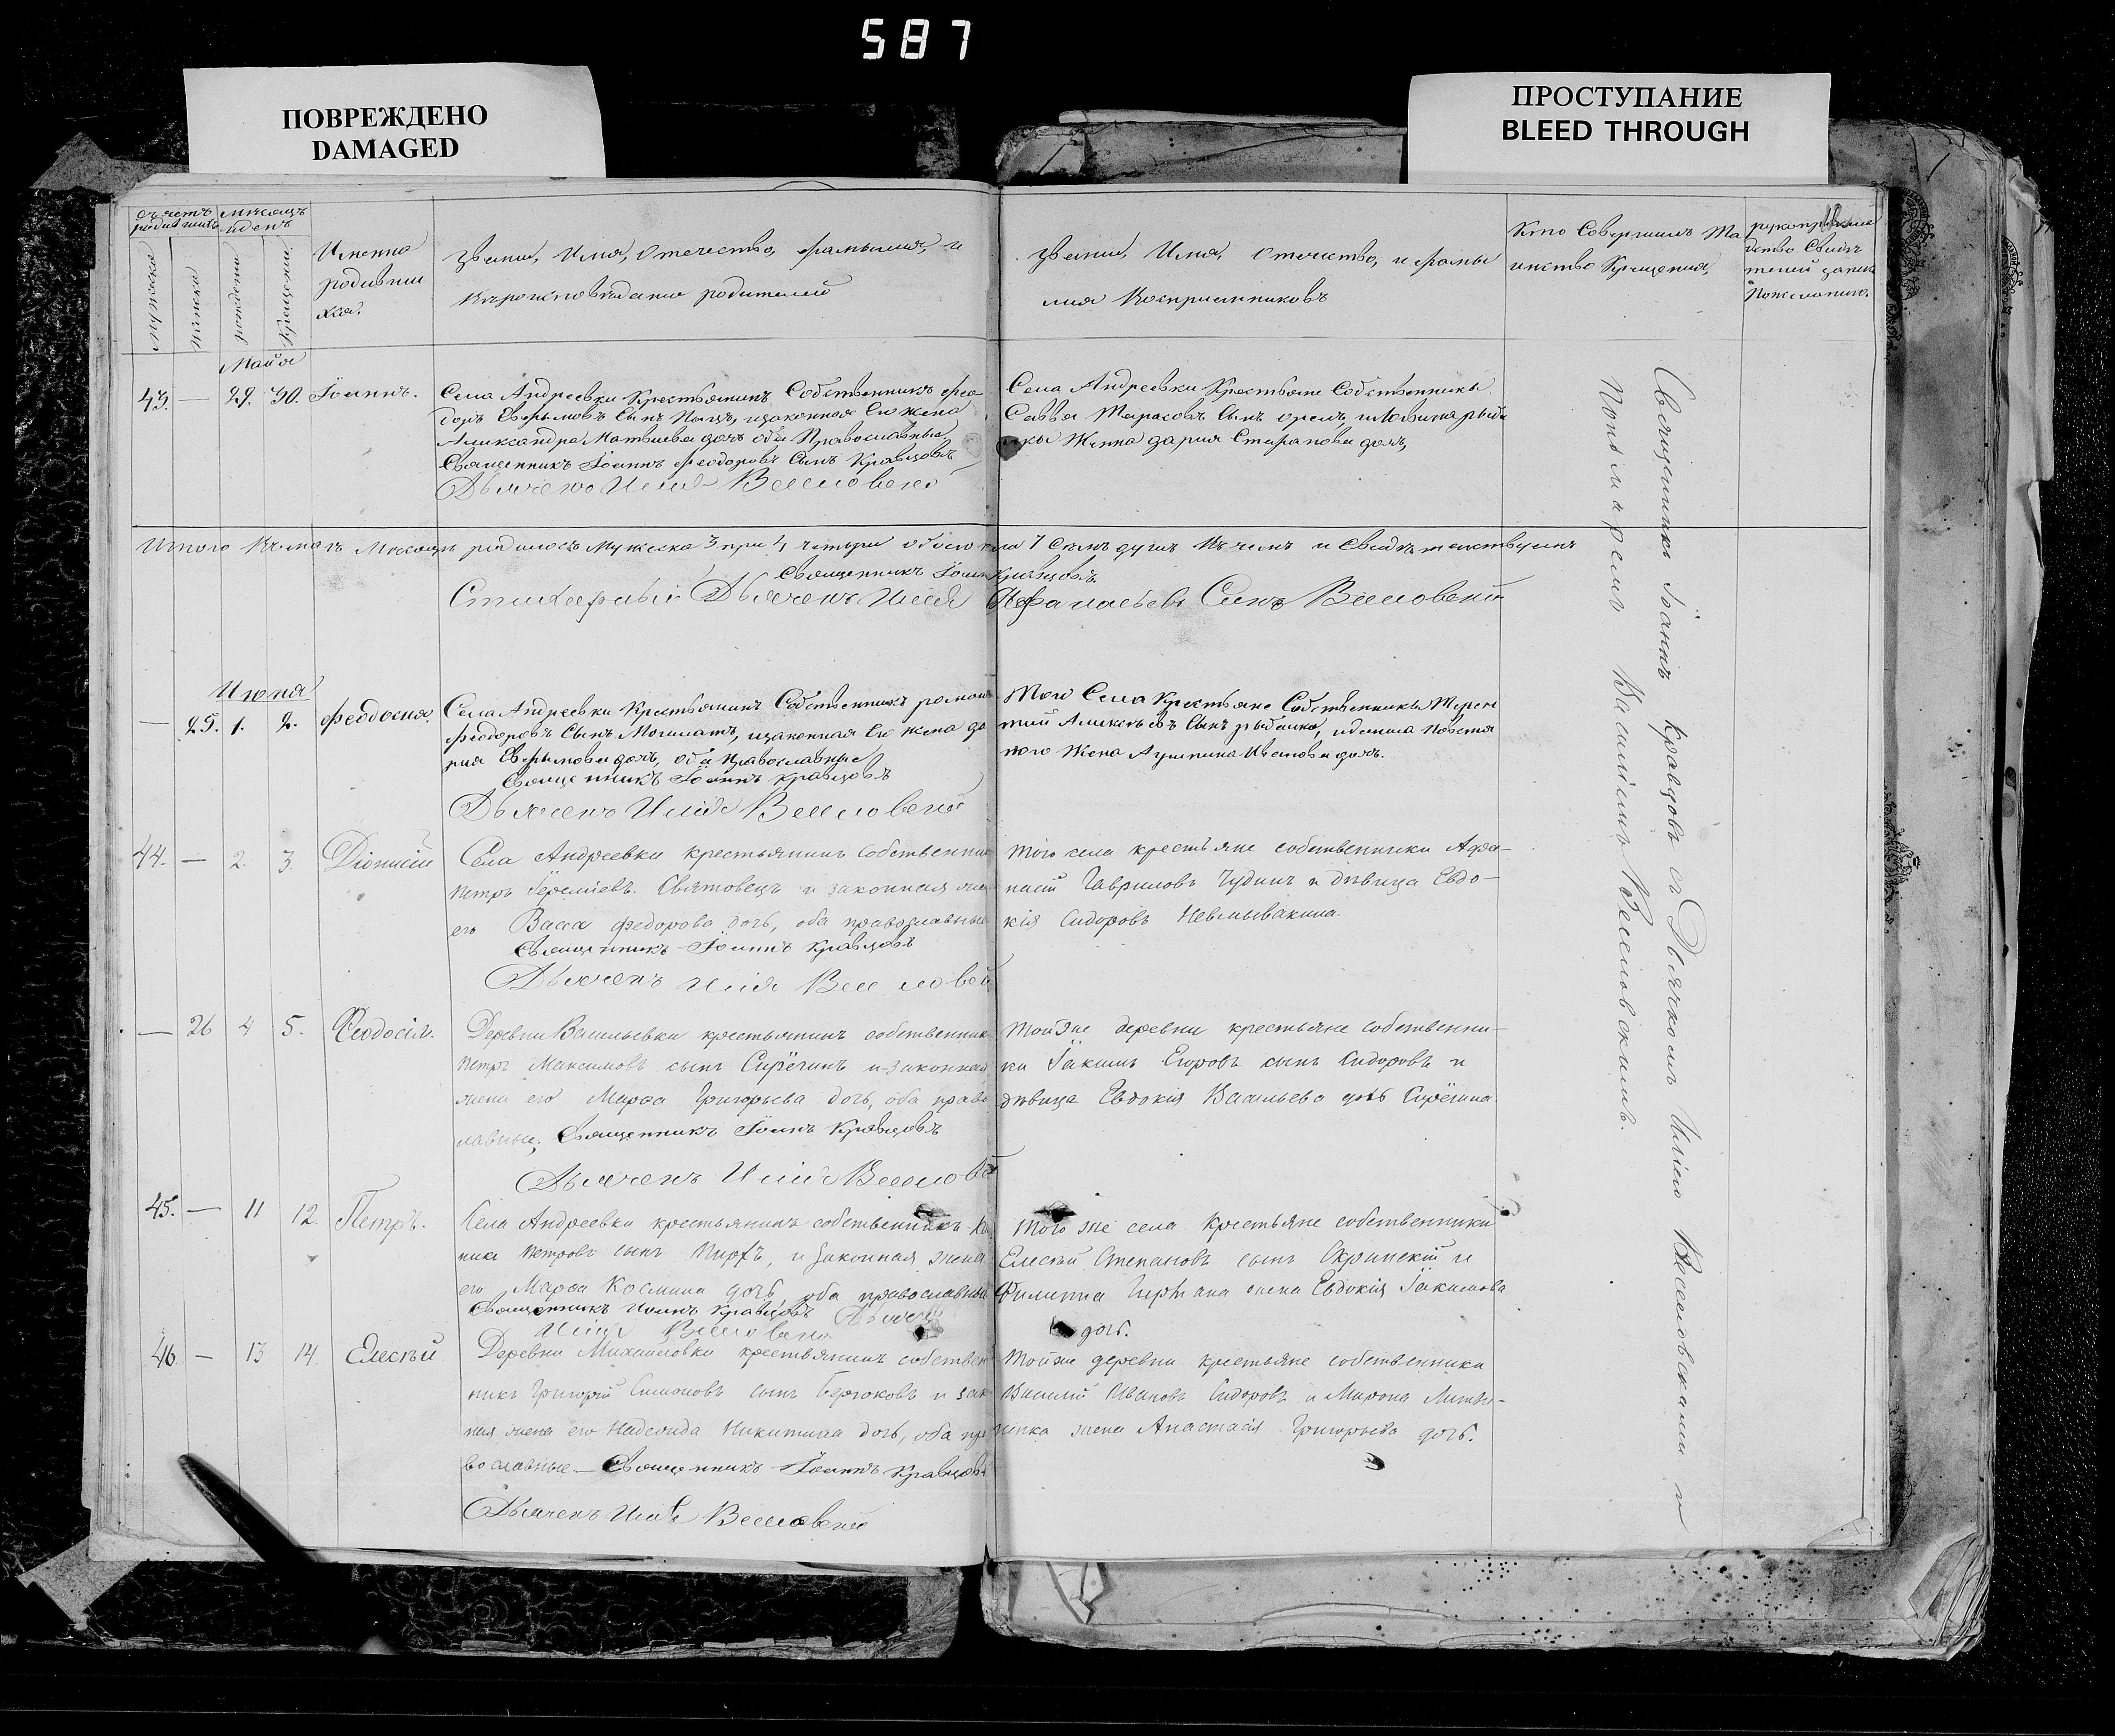 587
ПОВРЕЖДЕНО
DAMAGED
ПРОСТУПАНИЕ
BLEED THROUGH
Мѣсяцъ
мужска
рождения
Крещения.
Имена
родивши
хся.
Звание, Имя, Отечество, фамилия, и
Вѣроисповѣдание родителей
Звание, Имя, Отечество, и фами
лия Восприемниковъ
Кто Совершилъ Та
инство Крещения,
Майя
43. — 29. 30. Іоаннъ.
Села Андреевки Крестьянинъ Собственникъ Фео
доръ Ефимовъ Сынъ и законная Его жена
Александра Матвиева дочь оба Православные
Священникъ Іоаннъ Феодоровъ Сынъ Кравцовъ
Дьячекъ Илія Веселовский
Села Андреевки Крестьяне Собственники
Савва Тарасовъ Сынъ Орелъ,
Жена дария Стефанова дочь,
Итого Мѣсяцъ родилось Мужеска 3 три 4 четыри обоего пола 7 Семъ душъ Въ чемъ и Свидѣтельствуемъ
Священникъ Іоаннъ Кравцовъ
Дьячекъ Илія Афанасьевъ Синъ Веселовский
Июня
— 25. 1. 2. Феодосия.
Села Андреевки Крестьянинъ Собственникъ роман
Феодоровъ Сынъ Могилатъ, и законная Его жена да
рия Ефимова дочь, оба православные
Священникъ Іоаннъ Кравцовъ
Дьячекъ Илія Веселовский
Того Села Крестьяне Собственники Терен
тий Алексѣевъ Сынъ рыбалка,
Жена Агрипина Иванова дочь.
44. — 2 3. Діонисій
Села Андреевки крестьянинъ собственник
Петръ Іереміевъ Святовецъ и законная жена
его Васса Федорова дочь, оба православные
Священникъ Іоаннъ Кравцовъ
Дьячекъ Илія Веселовский
Того села крестьяне собственники Афа-
насій Гавриловъ Чудинъ и дѣвица Евдо-
кія Сидоровъ Невмывакина.
— 26 4 5. Феодосія.
Деревни Васильевки крестьянинъ собственник
Петръ Максимовъ сынъ Сирёгинъ и законная
жена его Марфа Григорьева дочь, оба право
славные; Священникъ Іоаннъ Кравцовъ
Дьячекъ Илія Веселовс
Той же деревни крестьяне собственни-
ки Іакимъ Егоровъ сынъ Сидоровъ и
дѣвица Евдокія Васильева дочь Сирёгина.
45. — 11 12. Петръ.
Села Андреевки крестьянинъ собственникъ
Петровъ сынъ и законная жена
его Марфа Космина дочь, оба православные
Священникъ Иоаннъ Кравцовъ Дьячекъ
Илия Веселовский
Того же села крестьяне собственники
Елисѣй Степановъ сынъ Скринскій и
Филиппа жена Евдокія Іакимова
дочь.
46 — 13 14. Елисѣй
Деревни Михайловки крестьянинъ собствен
никъ Григорій Симоновъ сынъ Бирюковъ и зак
ная жена его Надежда Никитина дочь, оба пра
вославные — Священникъ Іоаннъ Кравцовъ
Дьячекъ Илія Веселовский
Той же деревни крестьяне собственники
Василій Ивановъ Сидоровъ и Мирона Литви-
ненка жена Анастасія Григорьева дочь.
Священникъ Іоаннъ Кравцовъ съ Дьячкомъ Иліею Веселовскимъ и
Пономаремъ Василіемъ Веселовскимъ.